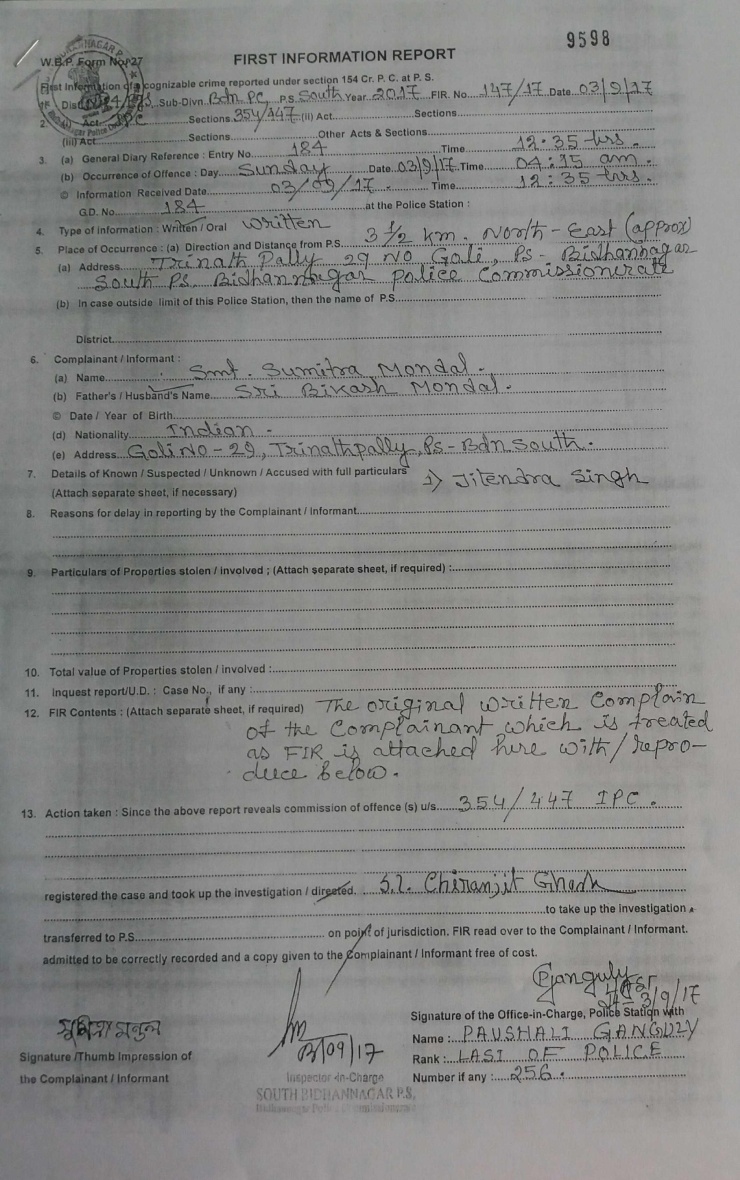 9598
W.B.P. Form No. 27
FIRST INFORMATION REPORT
First Information of a cognizable crime reported under section 154 Cr. P. C. at P. S.
1. Dist. Sub-Divn. Bdn PC P.S. South Year 2017 FIR. No. 147/17 Date 03/9/17
2. Act IPC Sections 354/447 (ii) Act Sections
(iii) Act Sections Other Acts & Sections
3. (a) General Diary Reference : Entry No. 184 Time 12:35 hrs.
(b) Occurrence of Offence : Day Sunday Date 03/9/17 Time 04:15 am.
© Information Received Date 03/09/17. Time 12:35 hrs.
G.D. No. 184 at the Police Station :
4. Type of information : Written / Oral Written
5. Place of Occurrence : (a) Direction and Distance from P.S. 3 1/2 km. North-East (approx)
(a) Address Trinath Pally 29 No Gali, Ps- Bidhannagar
South Ps. Bidhannagar Police Commissionerate
(b) In case outside limit of this Police Station, then the name of P.S.
District
6. Complainant / Informant :
(a) Name Smt. Sumitra Mondal.
(b) Father's / Husband's Name Sri Bikash Mondal.
© Date / Year of Birth
(d) Nationality Indian -
(e) Address Gali No - 29, Trinathpally, Ps - Bdn South.
7. Details of Known / Suspected / Unknown / Accused with full particulars 1) Jitendra Singh
(Attach separate sheet, if necessary)
8. Reasons for delay in reporting by the Complainant / Informant
9. Particulars of Properties stolen / involved ; (Attach separate sheet, if required) :
10. Total value of Properties stolen / involved :
11. Inquest report/U.D. : Case No., if any :
12. FIR Contents : (Attach separate sheet, if required) The original written Complain
of the Complainant which is treated
as FIR is attached here with/repro-
duce below.
13. Action taken : Since the above report reveals commission of offence (s) u/s. 354/447 IPC.
registered the case and took up the investigation / directed. S.I. Chiranjit Ghosh
to take up the investigation
transferred to P.S. on point of jurisdiction. FIR read over to the Complainant / Informant.
admitted to be correctly recorded and a copy given to the Complainant / Informant free of cost.
PGanguly
3/9/17
সুমিত্রা মন্ডল
03/09/17
Signature of the Office-in-Charge, Police Station with
Name : PAUSHALI GANGULY
Signature /Thumb Impression of
Rank : LASI OF POLICE
the Complainant / Informant
Inspector-in-Charge
Number if any : 256.
SOUTH BIDHANNAGAR P.S.